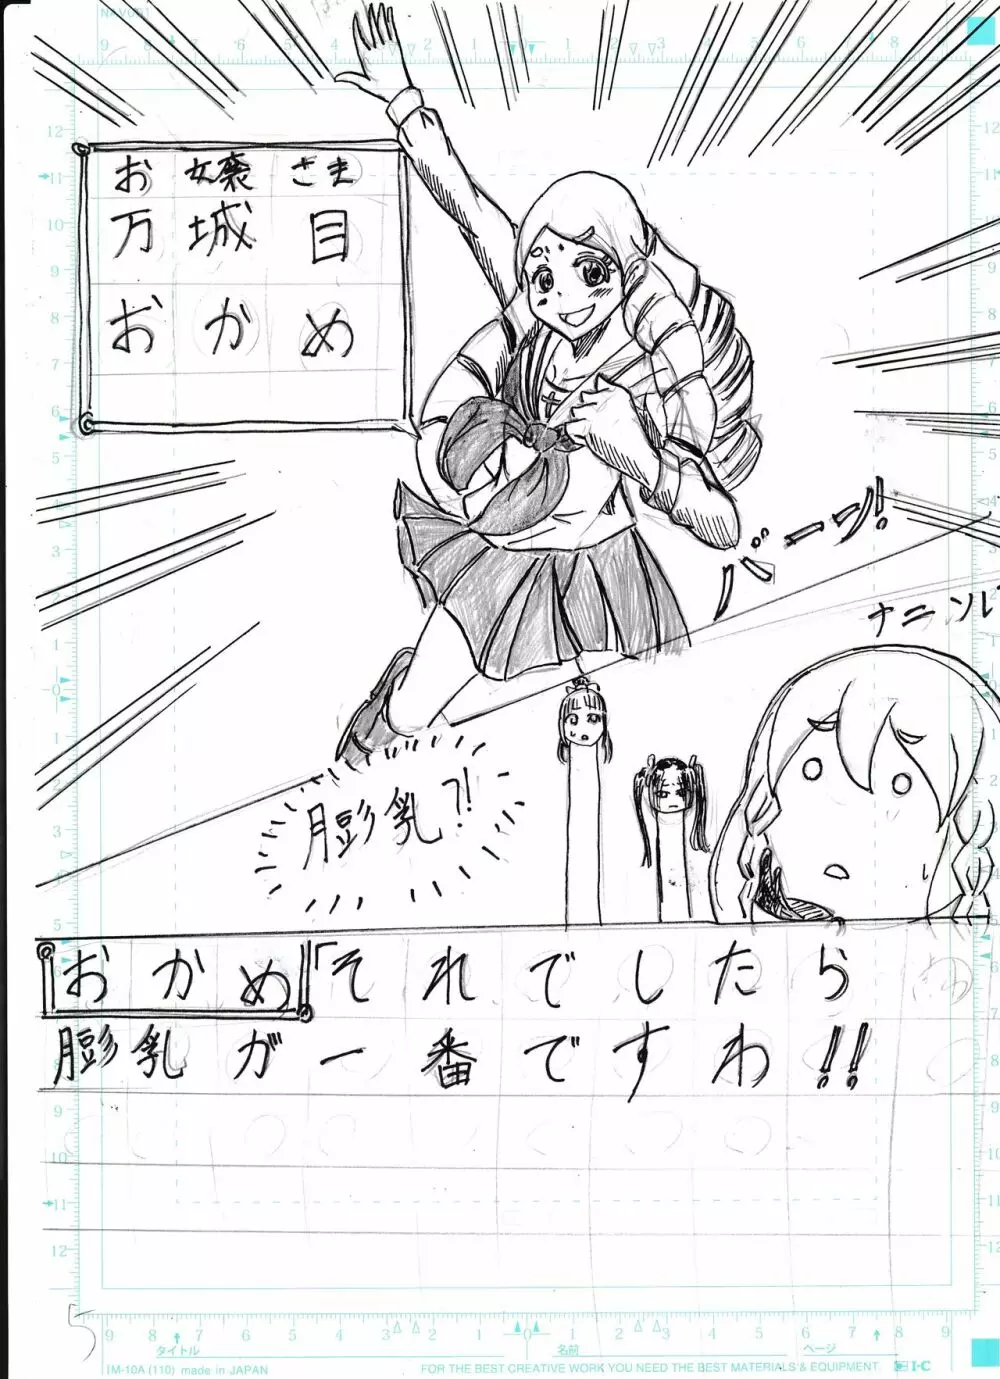 お嬢さま
万城目
おかめ
バーン!
ナニソレ
膨乳?!
おかめ「それでしたら
膨乳が一番ですわ!!
5
タイトル
名前
ページ
IM-10A (110) made in JAPAN
FOR THE BEST CREATIVE WORK YOU NEED THE BEST MATERIALS & EQUIPMENT
I·C